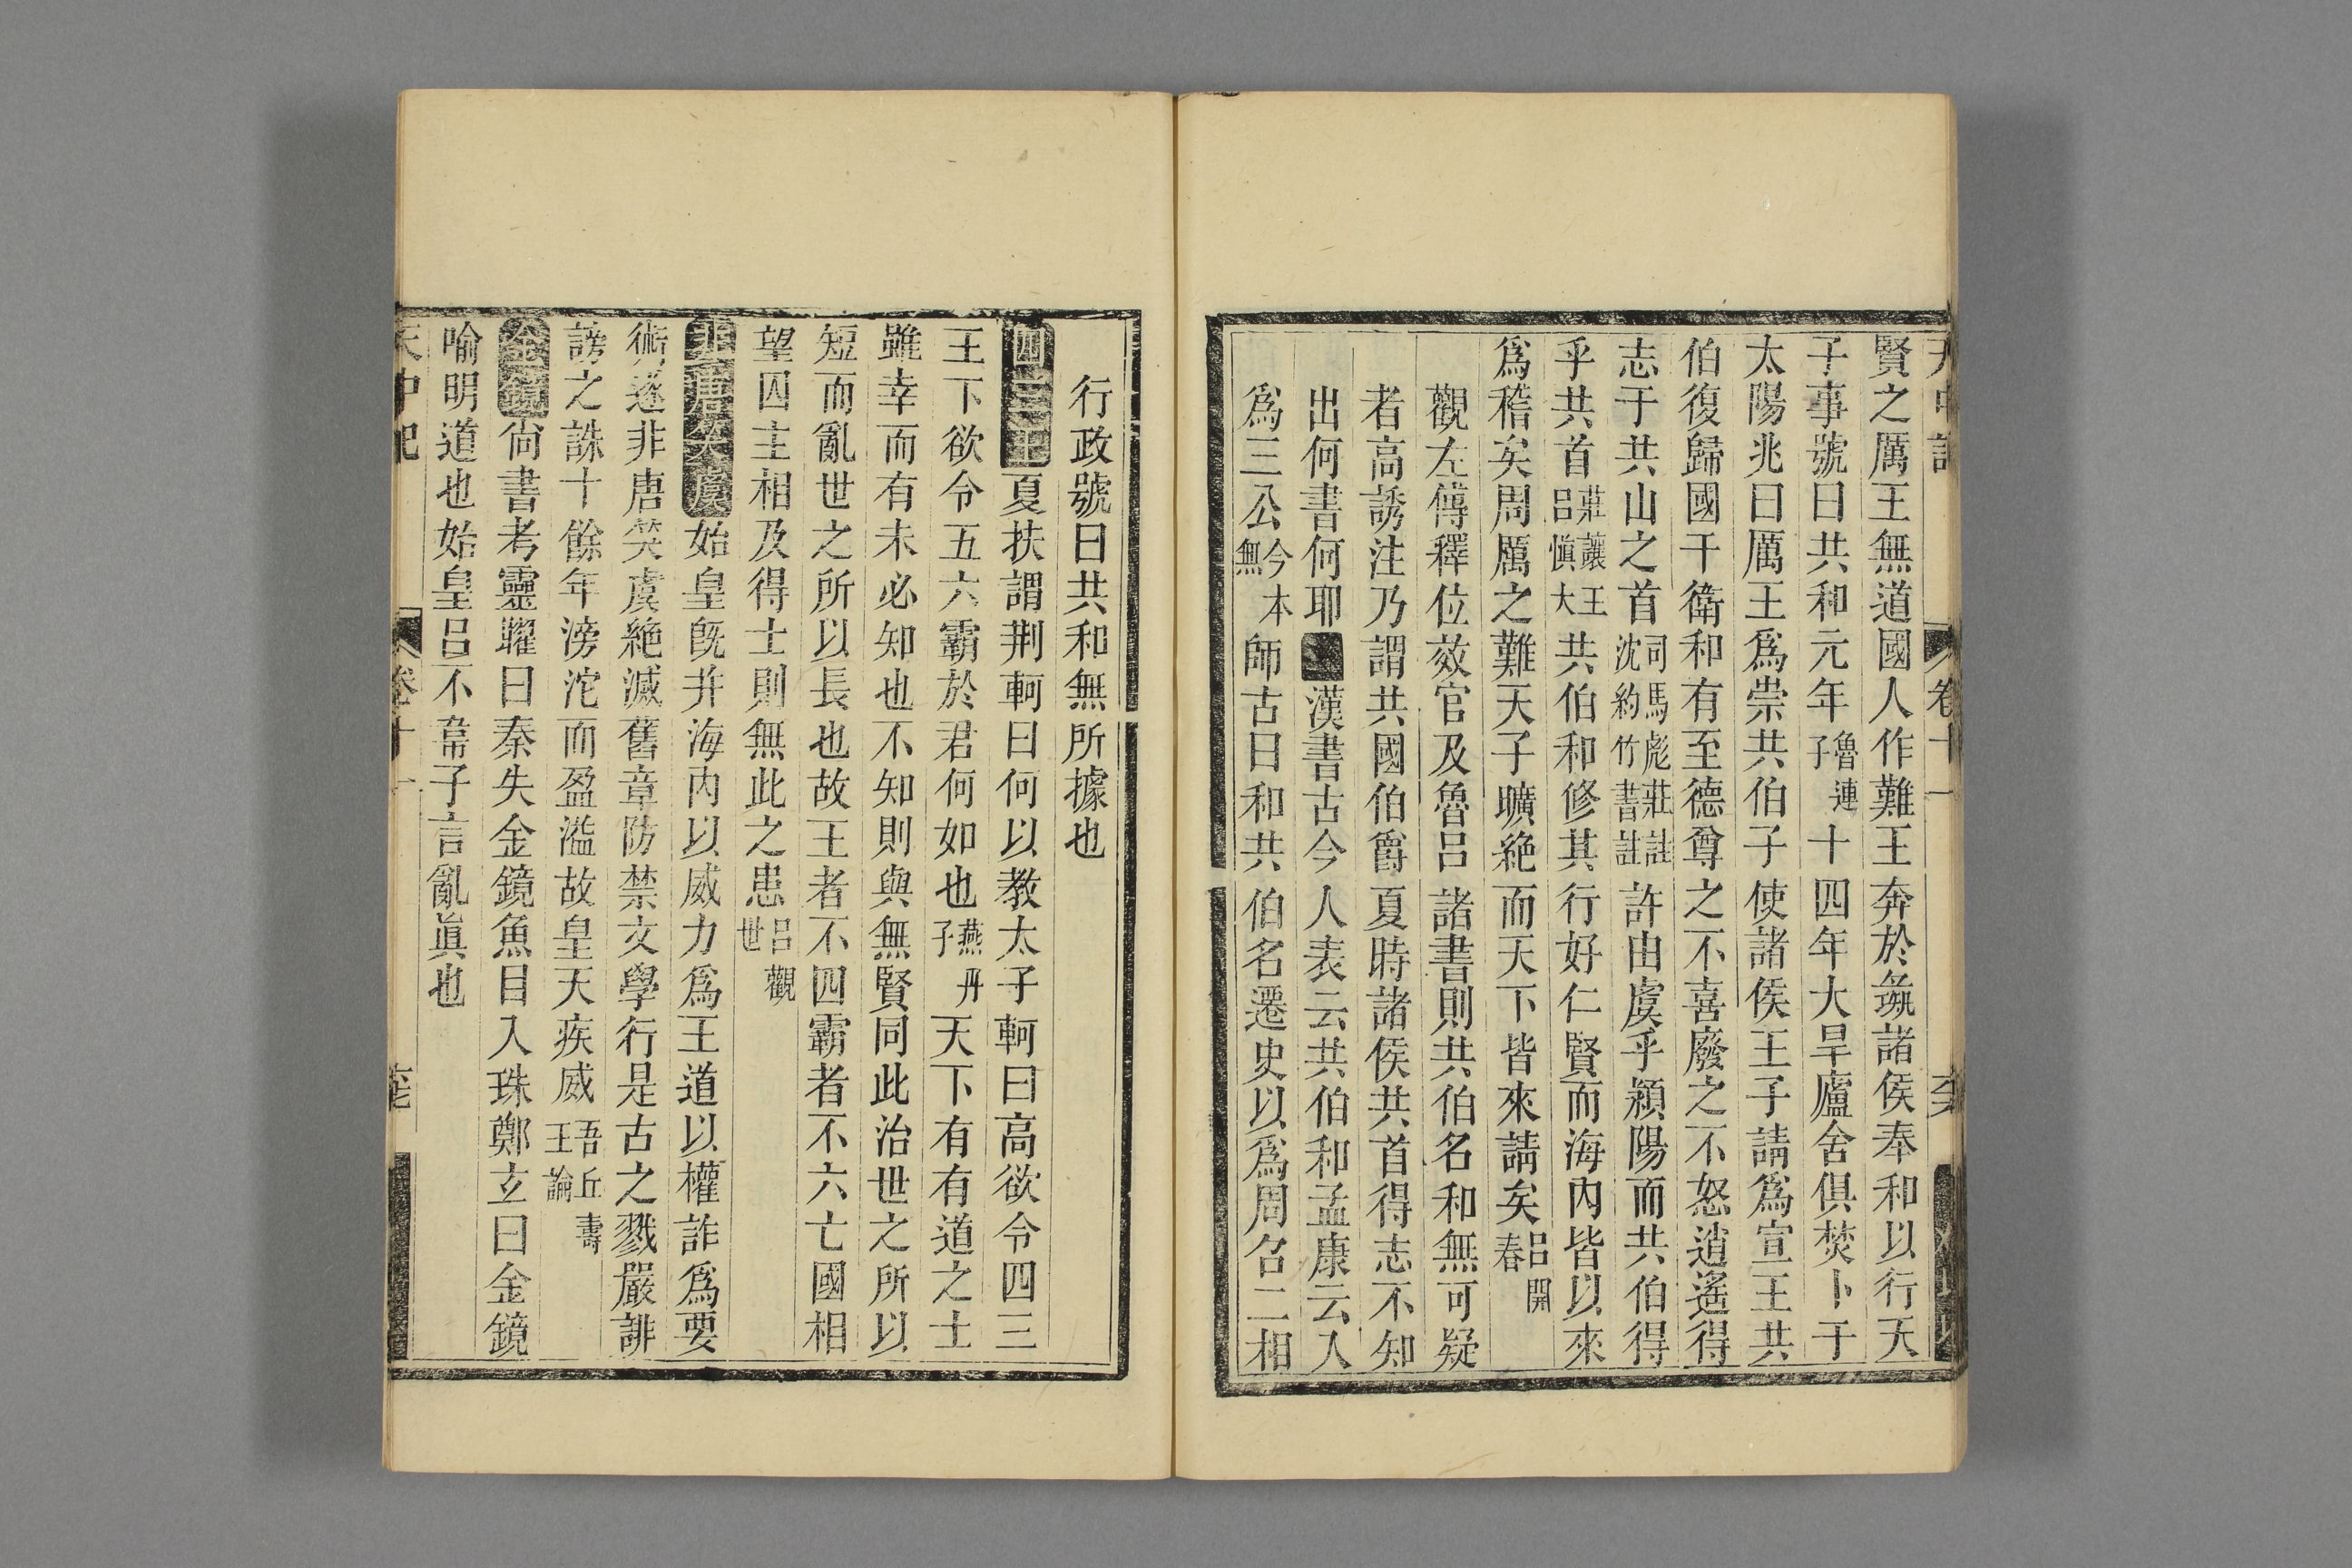 賢之厲王無道國人作難王奔於彘諸侯奉和以行天
子事號曰共和元年魯連子十四年大旱廬舍俱焚卜于
太陽兆曰厲王爲祟共伯子使諸侯王子請爲宣王共
伯復歸國于衛和有至德尊之不喜廢之不怒逍遙得
志于共山之首司馬彪莊註沈約竹書註許由虞乎潁陽而共伯得
乎共首莊讓王呂愼大共伯和修其行好仁賢而海內皆以來
爲稽矣周厲之難天子曠絶而天下皆來請矣呂開春
觀左傳釋位效官及魯呂諸書則共伯名和無可疑
者高誘注乃謂共國伯爵夏時諸侯共首得志不知
出何書何耶漢書古今人表云共伯和孟康云入
爲三公今本無師古曰和共伯名遷史以爲周召二相
行政號曰共和無所據也
四三王夏扶謂荆軻曰何以教太子軻曰高欲令四三
王下欲令五六霸於君何如也燕丹子天下有有道之士
雖幸而有未必知也不知則與無賢同此治世之所以
短而亂世之所以長也故王者不四霸者不六亡國相
望囚主相及得士則無此之患呂觀世
非唐笑虞始皇旣幷海內以威力爲王道以權詐爲要
術遂非唐笑虞絶滅舊章防禁文學行是古之戮嚴誹
謗之誅十餘年滂沱而盈溢故皇天疾威吾丘壽王論
金鏡尙書考靈曜曰秦失金鏡魚目入珠鄭玄曰金鏡
喻明道也始皇呂不韋子言亂眞也
天中記 卷十一